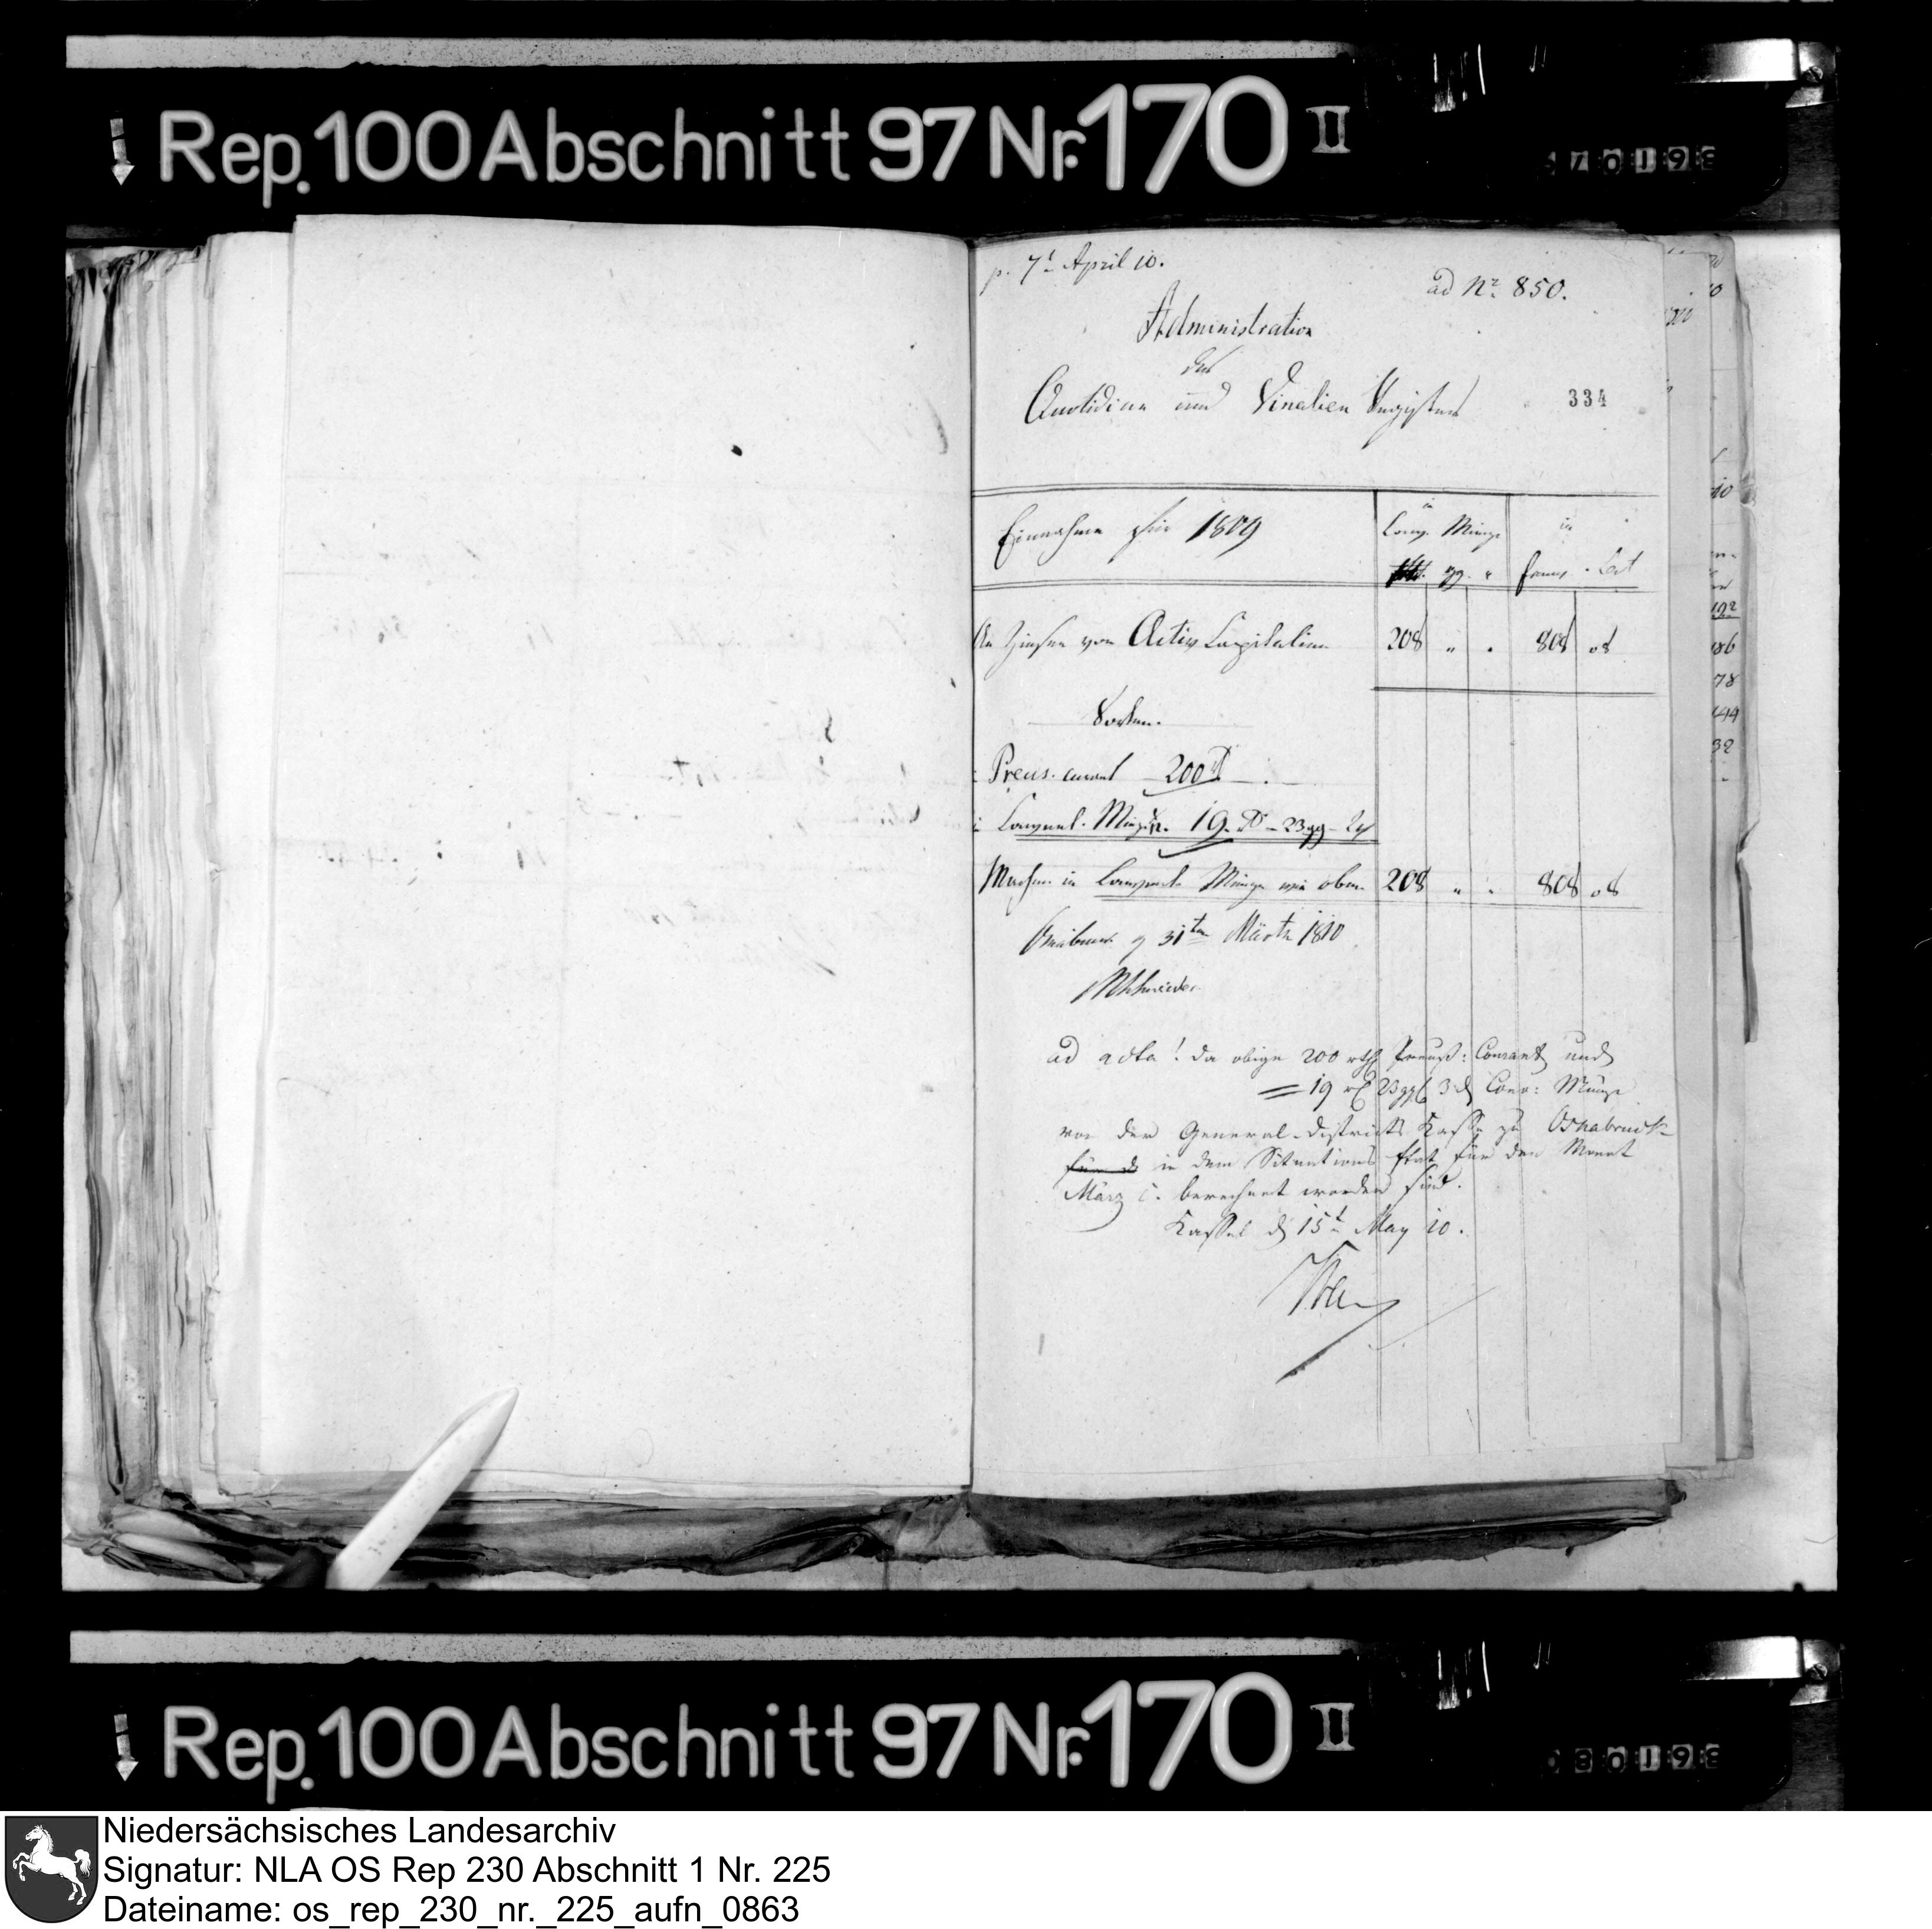 Rep. 100 Abschnitt 97 Nr. 170 II
p. 7t April 10.
ad Nr. 850.
Administration
des
Quotidian und Vinalien Registers
334
Einnahme für 1809
in
Conv. Münze
in
gg.
Franc. Cent
An Zinsen von Activ Capitalien 208 " . 808 08
Sorten.
Preus. curant 200
Convent. Münze. 19. 23 gg
in Convent. Münze wie oben. 208 " . 808 08
Osnabrück d 31ten Märtz 1810
ad acta! da obige 200 rth Preuß: Courant und
= 19 rt 23 ggl 3 d Conv: Münze
von der General-Districts Kasse zu Osnabrück
für d in dem Situations Etat für den Monat
März c. berechnet worden sind.
Kassel d 15t May 10.
Rep. 100 Abschnitt 97 Nr. 170 II
Niedersächsisches Landesarchiv
Signatur: NLA OS Rep 230 Abschnitt 1 Nr. 225
Dateiname: os_rep_230_nr._225_aufn_0863